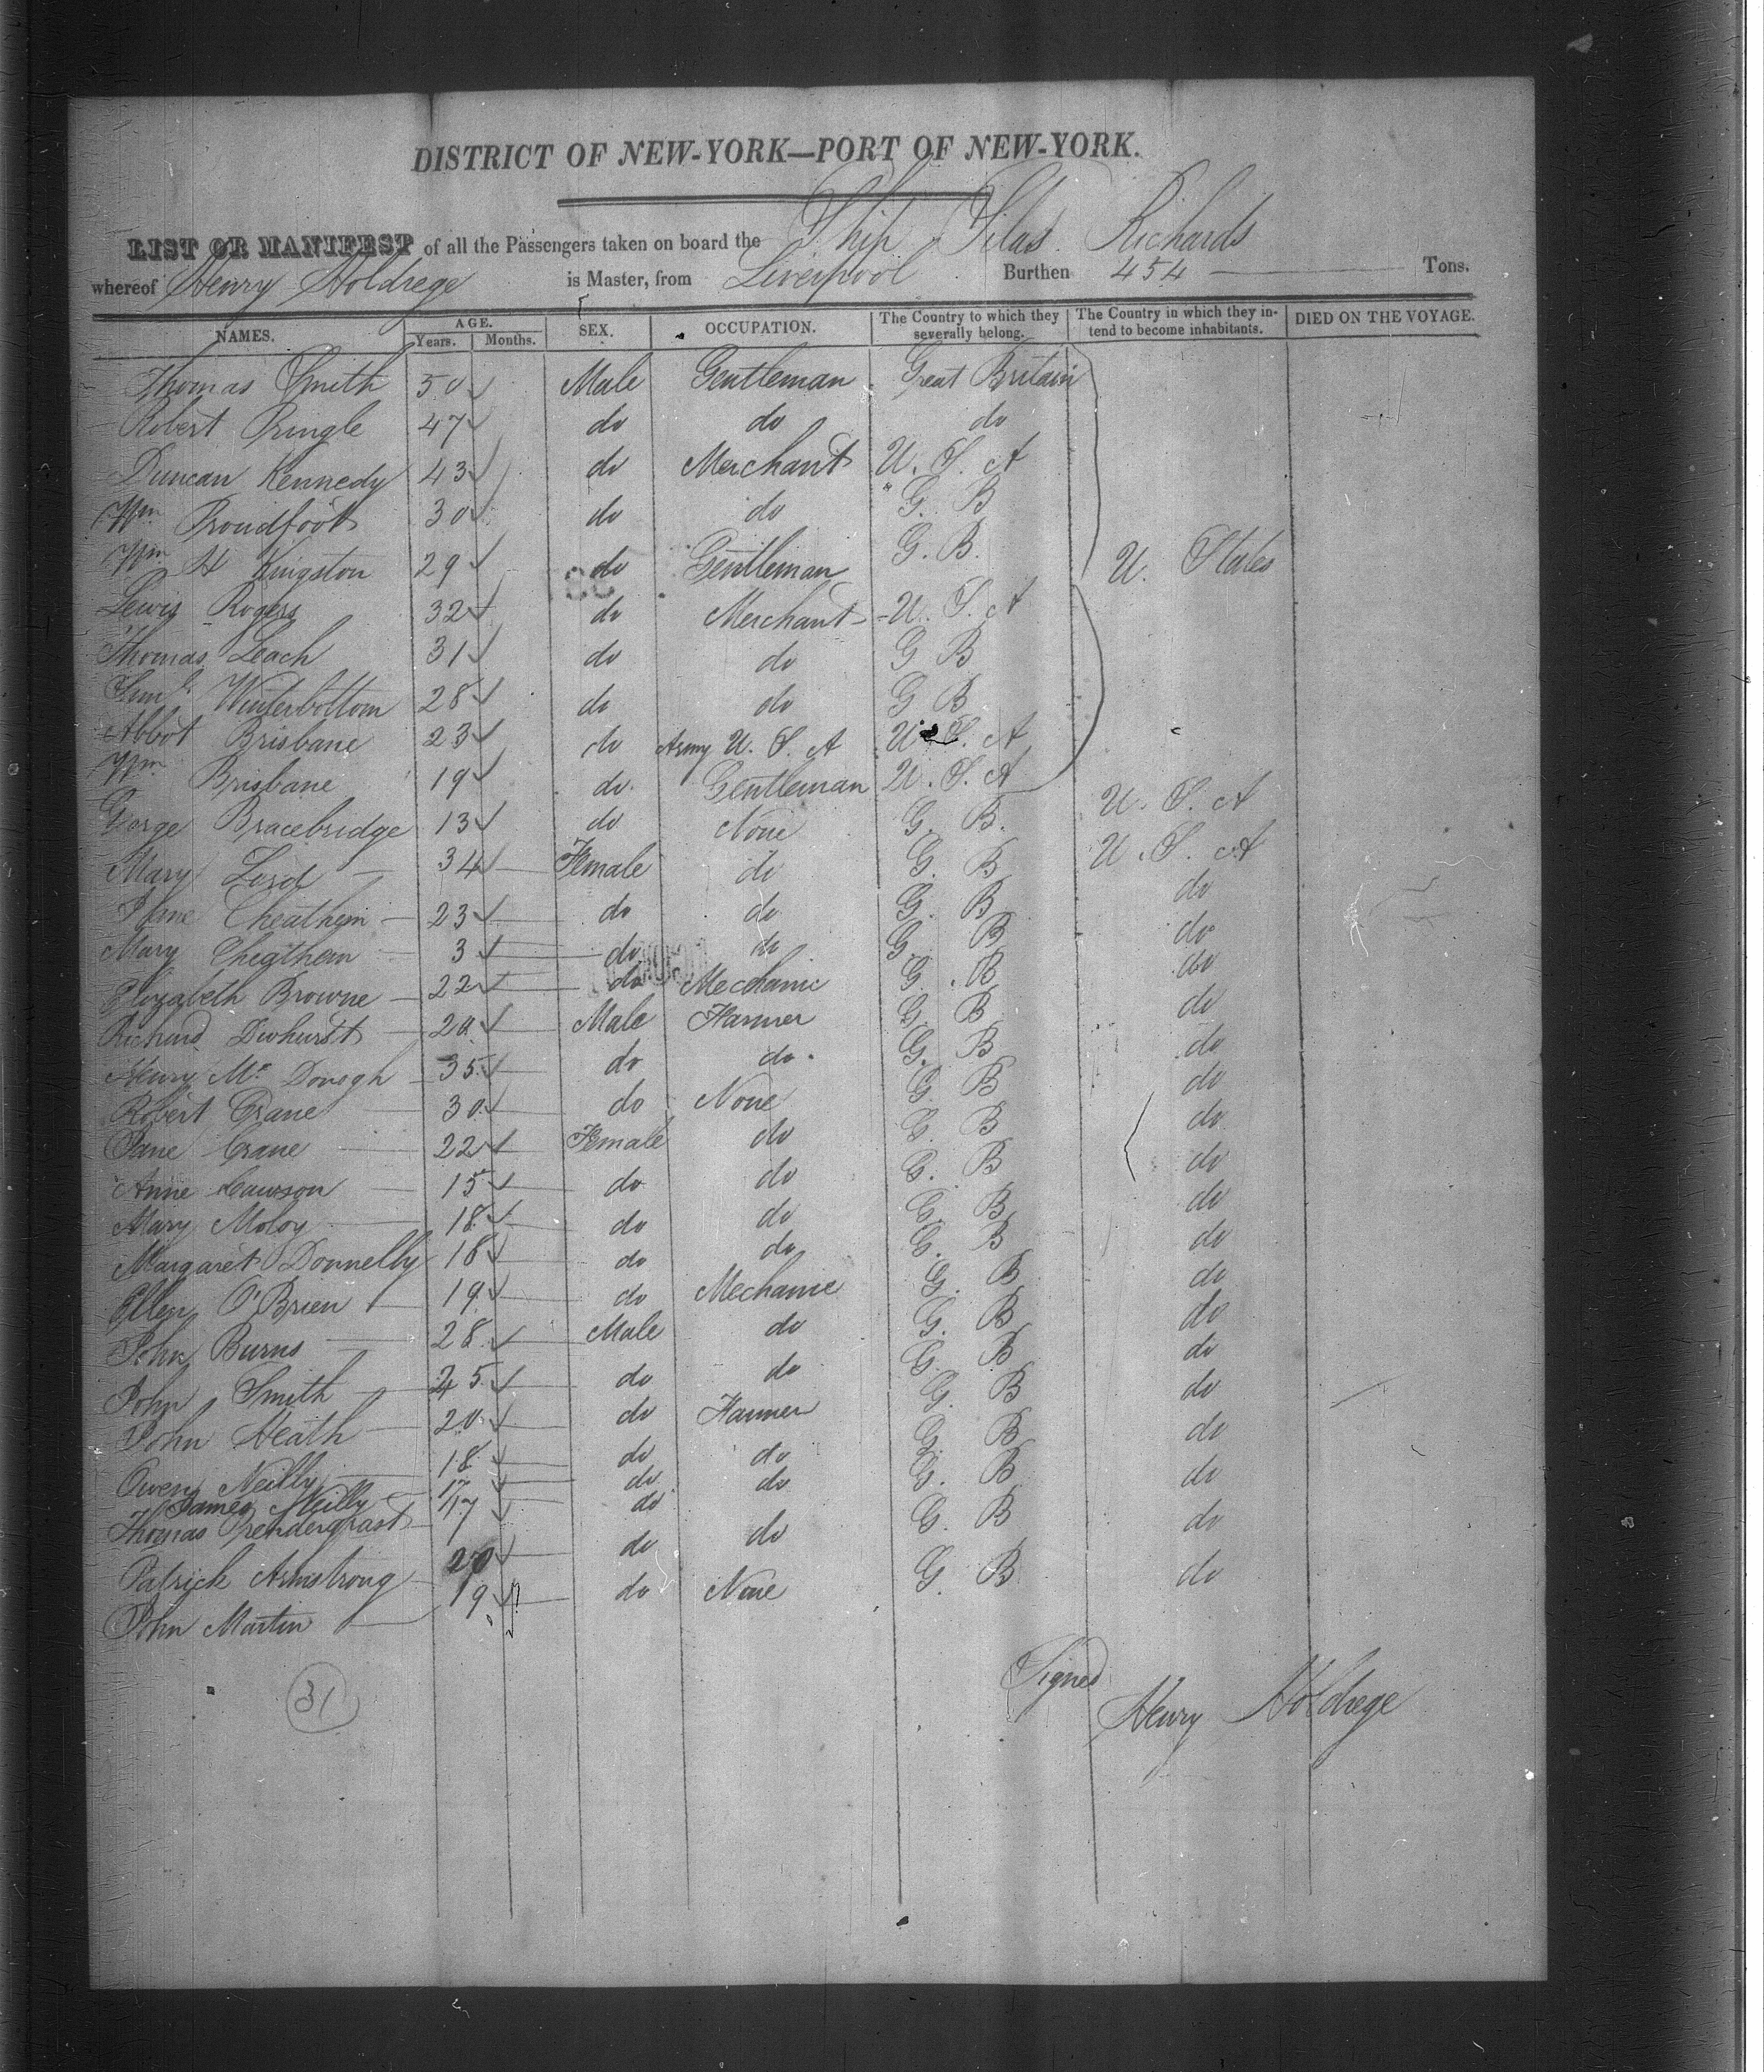 DISTRICT OF NEW-YORK—PORT OF NEW-YORK.
LIST OR MANIFEST of all the Passengers taken on board the Ship Silas Richards
whereof Henry Holdrege is Master, from Liverpool Burthen 454 Tons.
NAMES. AGE. Years. Months. SEX. OCCUPATION. The Country to which they severally belong. The Country in which they intend to become inhabitants. DIED ON THE VOYAGE.
Thomas Smith 50 Male Gentleman Great Britain
Robert Pringle 47 do do do
Duncan Kennedy 43 do Merchant U. S. A
Wm Proudfoot 30 do do G. B
Wm H Kingston 29 do Gentleman G. B. U. States
Lewis Rogers 32 do Merchant U. S. A
Thomas Leach 31 do do G B
Saml Winterbottom 28 do do G B
Abbot Brisbane 23 do Army U. S. A U. S. A
Wm Brisbane 19 do. Gentleman U. S. A
George Bracebridge 13 do None G. B. U. S. A
Mary Lord 34 Female do G. B U. S. A
Jane Cheathem 23 do do G. B do
Mary Cheathem 3 do do G. B do
Elizabeth Browne 22 do Mechanic G. B do
Richard Dewhurst 20 Male Farmer G. B do
Henry Mc Donogh 35 do do. G. B do
Robert Crane 30 do None G. B do
Jane Crane 22 Female do G. B do
Anne Cawson 15 do do G. B do
Mary Moloy 18 do do G. B do
Margaret Donnelly 18 do do G. B do
Ellen O'Brien 19 do Mechanic G. B do
John Burns 28 Male do G. B do
John Smith 25 do do G. B do
John Heath 20 do Farmer G. B do
Owen Neilly 18 do do G. B do
James Neilly 17 do do G. B do
Thomas Prendergrast 17 do
Patrick Armstrong 20 do do G. B do
John Martin 19 do None G. B do
31
Signed
Henry Holdrege